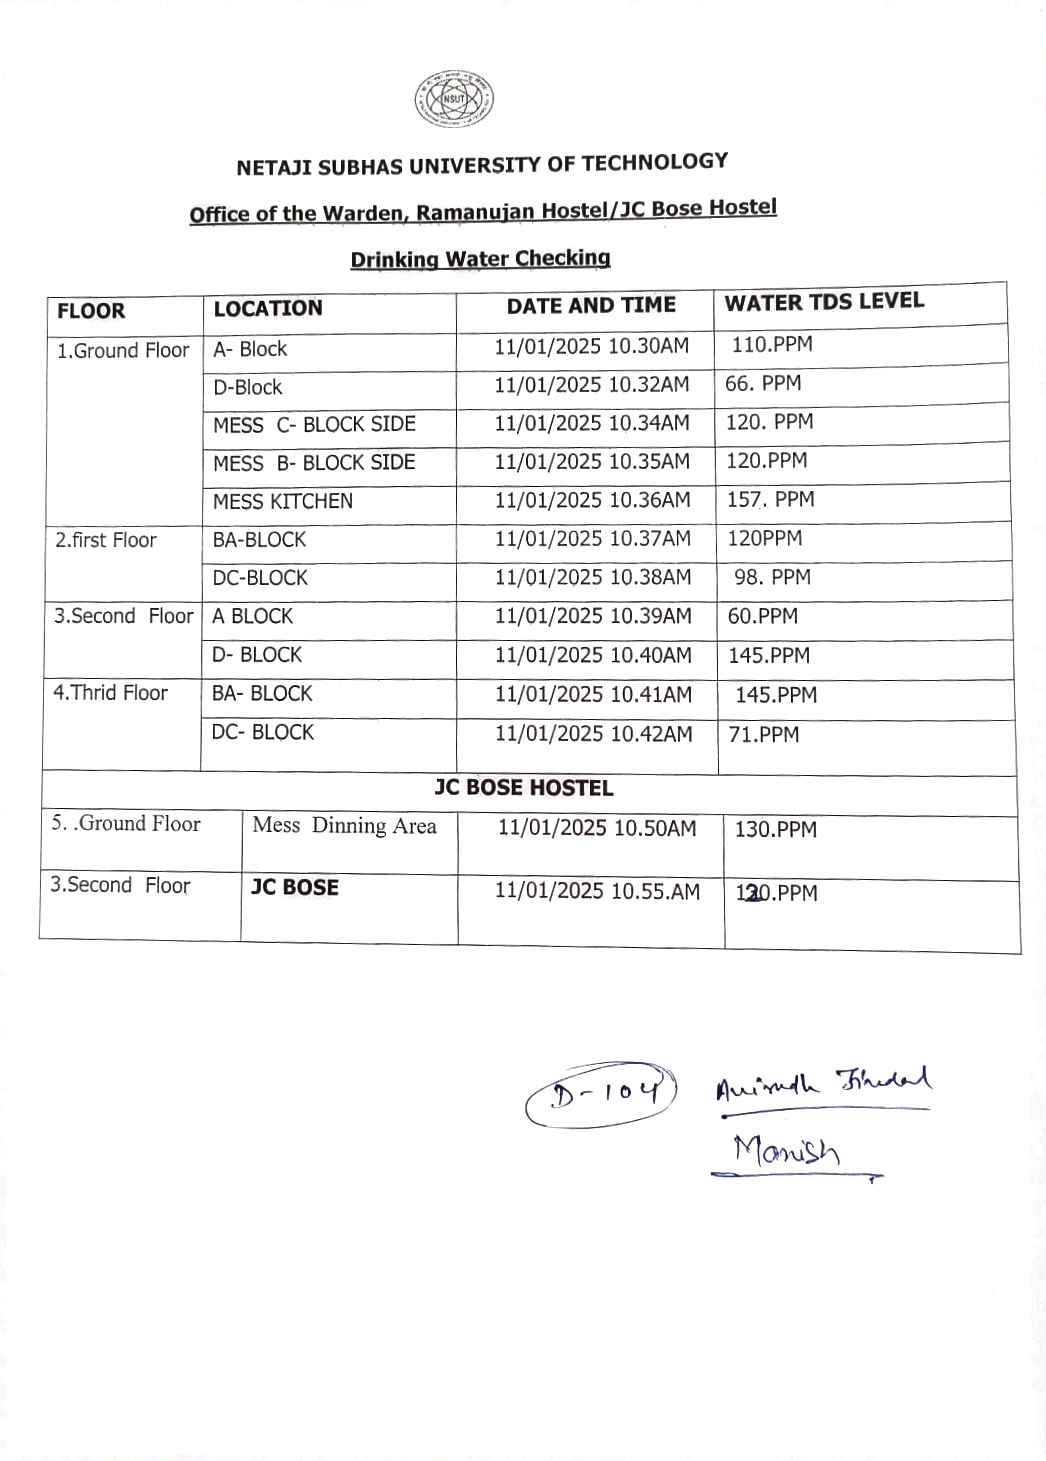 NSUT
NETAJI SUBHAS UNIVERSITY OF TECHNOLOGY
Office of the Warden, Ramanujan Hostel/JC Bose Hostel
Drinking Water Checking
FLOOR LOCATION DATE AND TIME WATER TDS LEVEL
1.Ground Floor A- Block 11/01/2025 10.30AM 110.PPM
D-Block 11/01/2025 10.32AM 66. PPM
MESS C- BLOCK SIDE 11/01/2025 10.34AM 120. PPM
MESS B- BLOCK SIDE 11/01/2025 10.35AM 120.PPM
MESS KITCHEN 11/01/2025 10.36AM 157. PPM
2.first Floor BA-BLOCK 11/01/2025 10.37AM 120PPM
DC-BLOCK 11/01/2025 10.38AM 98. PPM
3.Second Floor A BLOCK 11/01/2025 10.39AM 60.PPM
D- BLOCK 11/01/2025 10.40AM 145.PPM
4.Thrid Floor BA- BLOCK 11/01/2025 10.41AM 145.PPM
DC- BLOCK 11/01/2025 10.42AM 71.PPM
JC BOSE HOSTEL
5. .Ground Floor Mess Dinning Area 11/01/2025 10.50AM 130.PPM
3.Second Floor JC BOSE 11/01/2025 10.55.AM 120.PPM
D-104 Anirudh Jindal
Manish